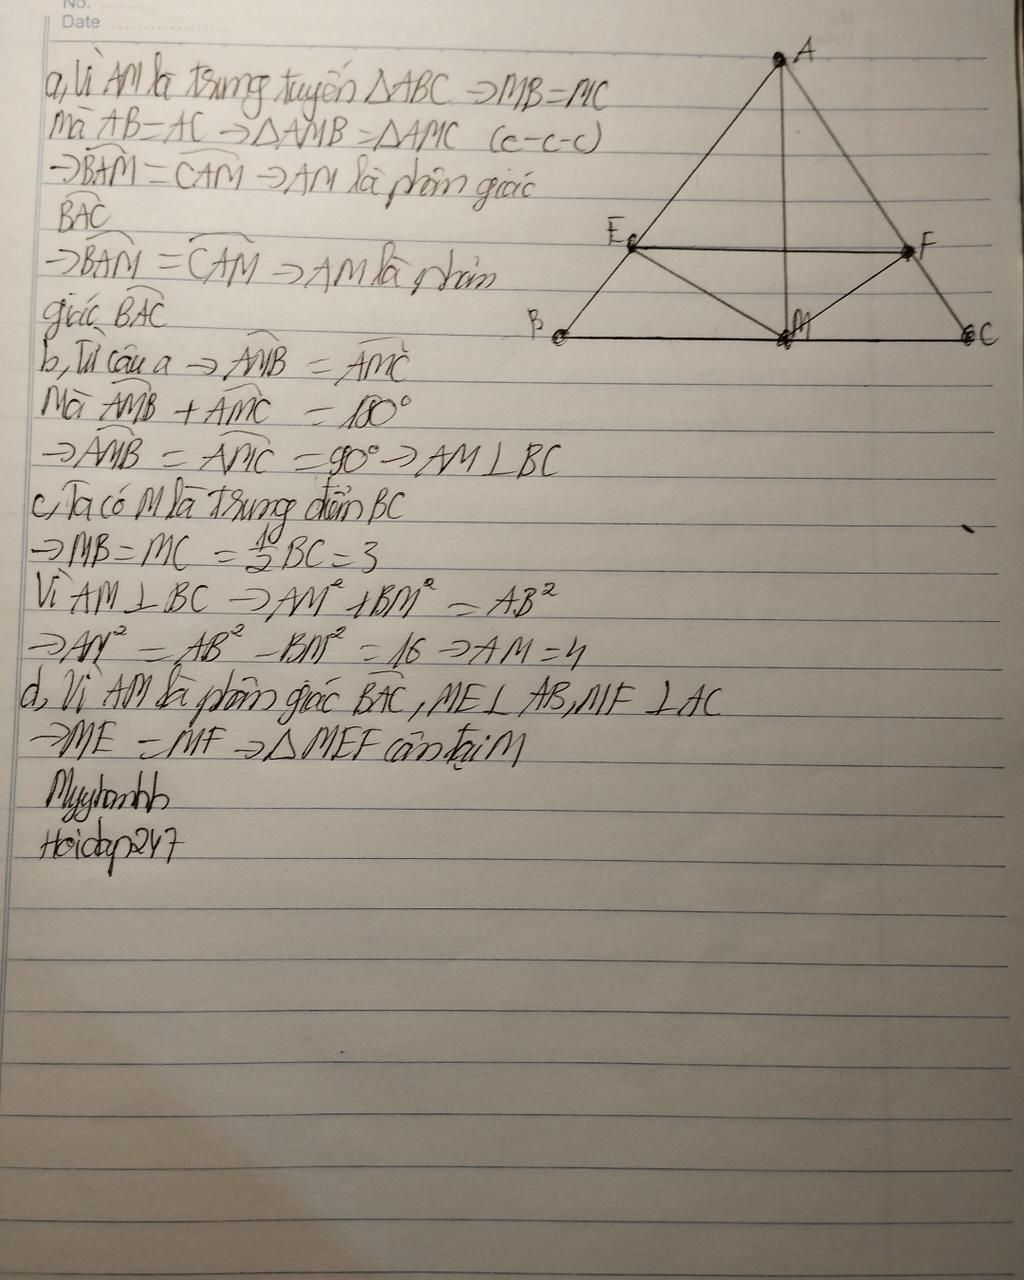 No.
Date
a, Vì AM là trung tuyến ΔABC → MB = MC
Mà AB = AC → ΔAMB = ΔAMC (c-c-c)
→ BAM = CAM → AM là phân giác
BAC
→ BAM = CAM → AM là phân
giác BAC
b, Từ câu a → AMB = AMC
Mà AMB + AMC = 180°
→ AMB = AMC = 90° → AM ⊥ BC
c, Ta có M là trung điểm BC
→ MB = MC = 1/2 BC = 3
Vì AM ⊥ BC → AM² + BM² = AB²
→ AM² = AB² - BM² = 16 → AM = 4
d, Vì AM là phân giác BAC, ME ⊥ AB, MF ⊥ AC
→ ME = MF → ΔMEF cân tại M
Hoidap247
A
E
F
B
M
C